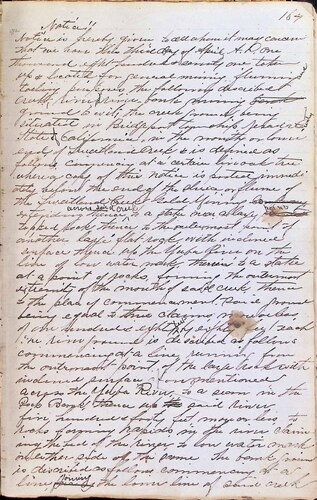 164
Notice
Notice is hereby given to all whom it may concern
that we have this third day of April A.D. one
thousand eight hundred & seventy one taken
up & located for general mining fluming
tailing purposes, the following described
creek, river, river bank mining
ground to wit; the creek ground being
situated in Bridgeport township,
State California, at the mouth or lower
end of Creek & is defined as
follows commencing at a certain live oak tree
where a copy of this notice is posted immedi
ately below the end of the drive or flume of
the Creek Gold Mining
thence to a stake near a large
topped rock, thence to the outermost point of
another large flat rock with inclined
surface thence up the Yuba River on the
line of low water mark thence to a stake
at a point of rocks, forming the outermost
extremity of the mouth of said creek thence
to the place of commencement. Said ground
being equal to three claims or
of one hundred & eighty feet each
The river ground is described as follows
commencing at a line running from
the outermost point of the large rock with
inclined surface mentioned
across the Yuba River to a seam in the
Bank thence up the said River
five hundred feet more or less to
rocks forming rapids in the river claim
ing the bed of the river to low water mark
on either side of the same The bank ground
is described as follows commencing at a
line joining the lower line of said creek